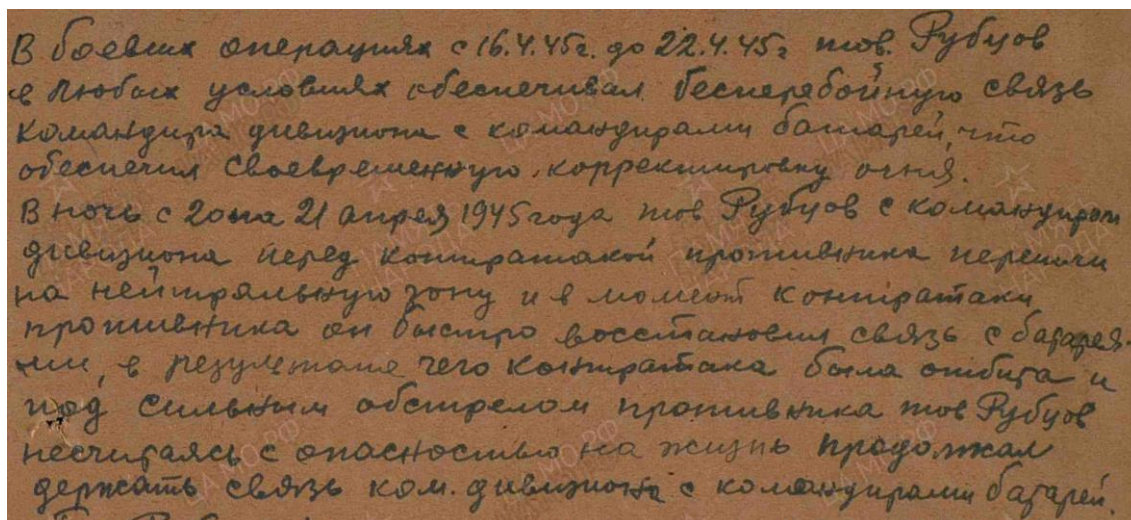 В боевых операциях с 16.4.45г. до 22.4.45г тов. Рубцов
в любых условиях обеспечивал бесперебойную связь
командира дивизиона с командирами батарей, что
обеспечил своевременную корректировку огня.
В ночь с 20 на 21 апреля 1945 года тов Рубцов с командиром
дивизиона перед контратакой противника
на нейтральную зону и в момент контратаки
противника он быстро восстановил связь с батарея-
ми, в результате чего контратака была отбита и
под сильным обстрелом противника тов Рубцов
несчитаясь с опасностью на жизнь продолжал
держать связь ком. дивизиона с командирами батарей.